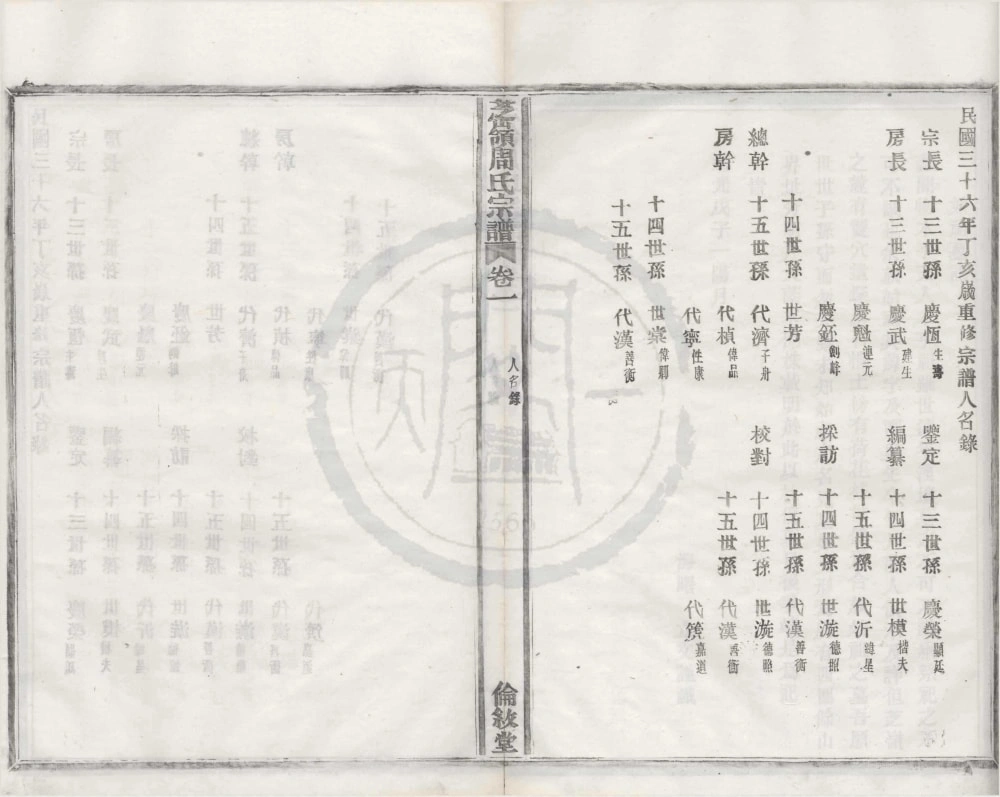 民國三十六年丁亥歲重修宗譜人名錄
宗長 十三世孫 慶恆 生濤 鑒定 十三世孫 慶榮 顯廷
房長 十三世孫 慶武 建生 編纂 十四世孫 世模 楷夫
慶魁 蓮元 十五世孫 代沂 聰星
慶鉟 劍峰 採訪 十四世孫 世漩 德照
十四世孫 世芳 十五世孫 代漢 善衡
總幹 十五世孫 代濟 千舟 校對 十四世孫 世漩 德照
房幹 代楨 偉品 十五世孫 代漢 善衡
代寧 性康 代簱 嘉道
十四世孫 世棠 偉卿
十五世孫 代漢 善衡
芝嶺周氏宗譜 卷一 人名錄 倫敘堂